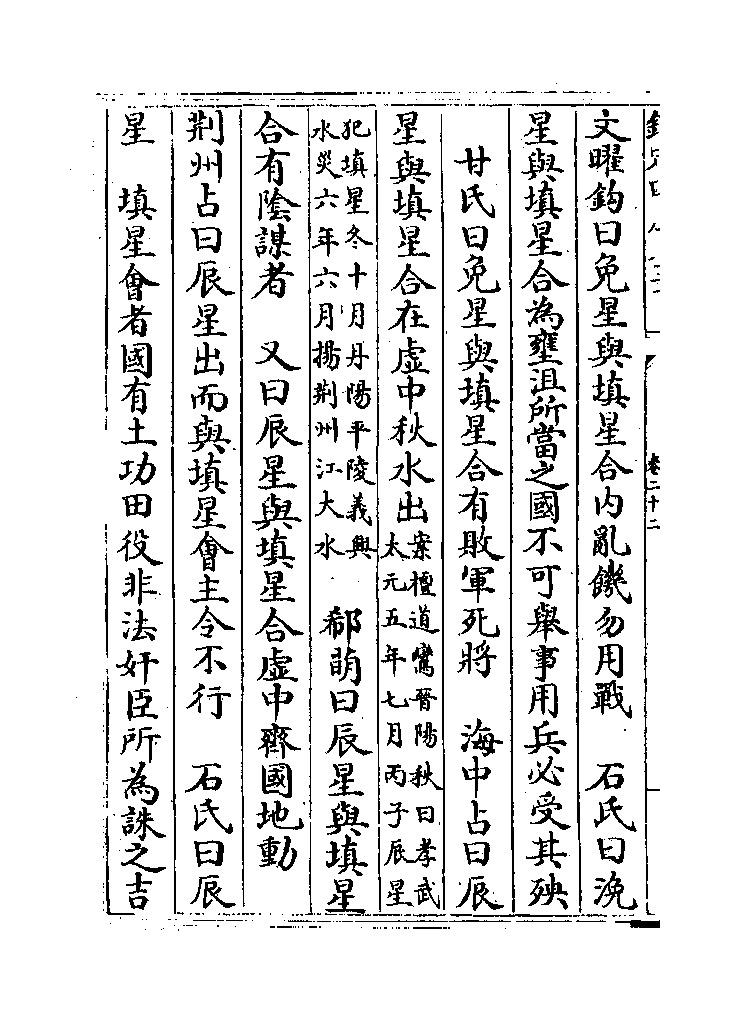 卷二十二
文曜鈎曰免星與填星合内亂饑勿用戰　石氏曰㲽
星與填星合為壅沮所當之國不可舉事用兵必受其殃
甘氏曰免星與填星合有敗軍死將　海中占曰辰
星與填星合在虚中秋水出案檀道鸞晉陽秋曰孝武
太元五年七月丙子辰星
犯填星冬十月丹陽平陵義興
水災六年六月揚荆州江大水　郗萌曰辰星與填星
合有陰謀者　又曰辰星與填星合虚中齊國地動
荆州占曰辰星出而與填星會主令不行　石氏曰辰
星　填星會者國有土功田役非法奸臣所為誅之吉